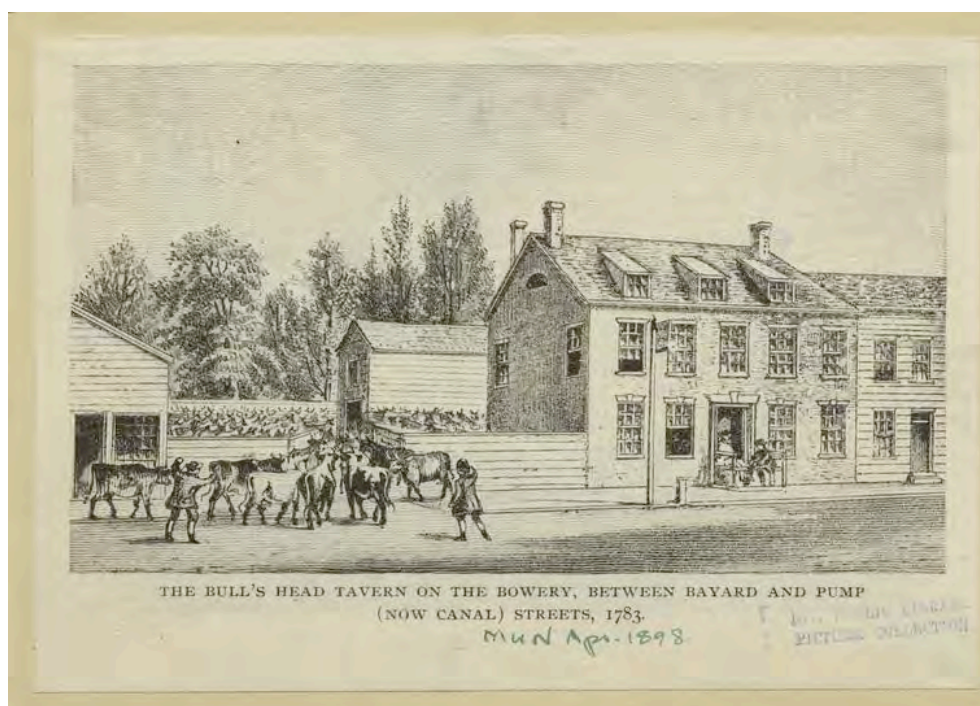 THE BULL'S HEAD TAVERN ON THE BOWERY, BETWEEN BAYARD AND PUMP
(NOW CANAL) STREETS, 1783.
MUN Apr. 1898
PUBLIC LIBRARY
PICTURE COLLECTION